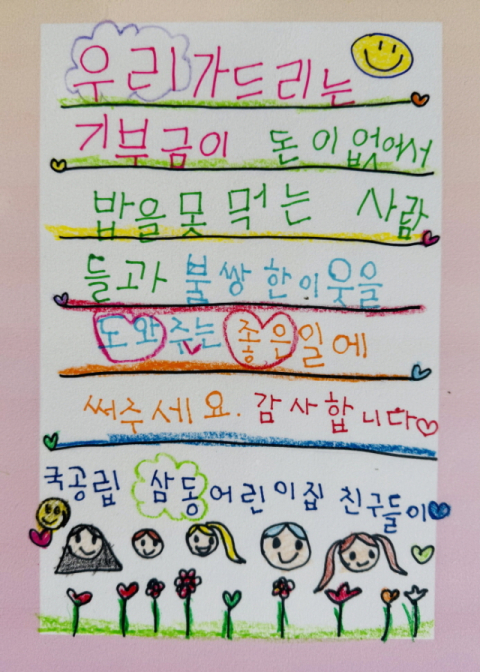 우리가드리는
기부금이 돈이없어서
밥을못먹는 사람
들고과 불쌍한이웃을
도와주는좋은일에
써주세요. 감사합니다
국공립 삼동어린이집 친구들이